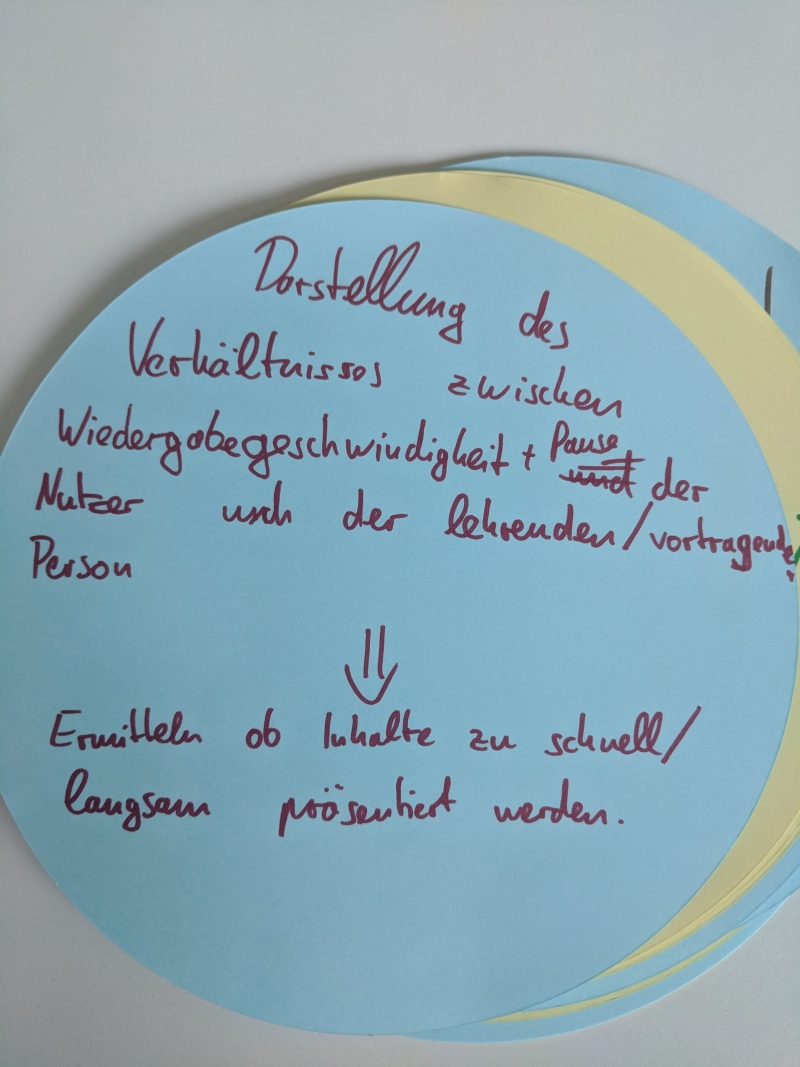 Darstellung des
Verhältnisses zwischen
Wiedergabegeschwindigkeit + Pause
und der
Nutzer der lehrenden/vortragenden
Person
⇓
Ermitteln ob Inhalte zu schnell/
langsam präsentiert werden.